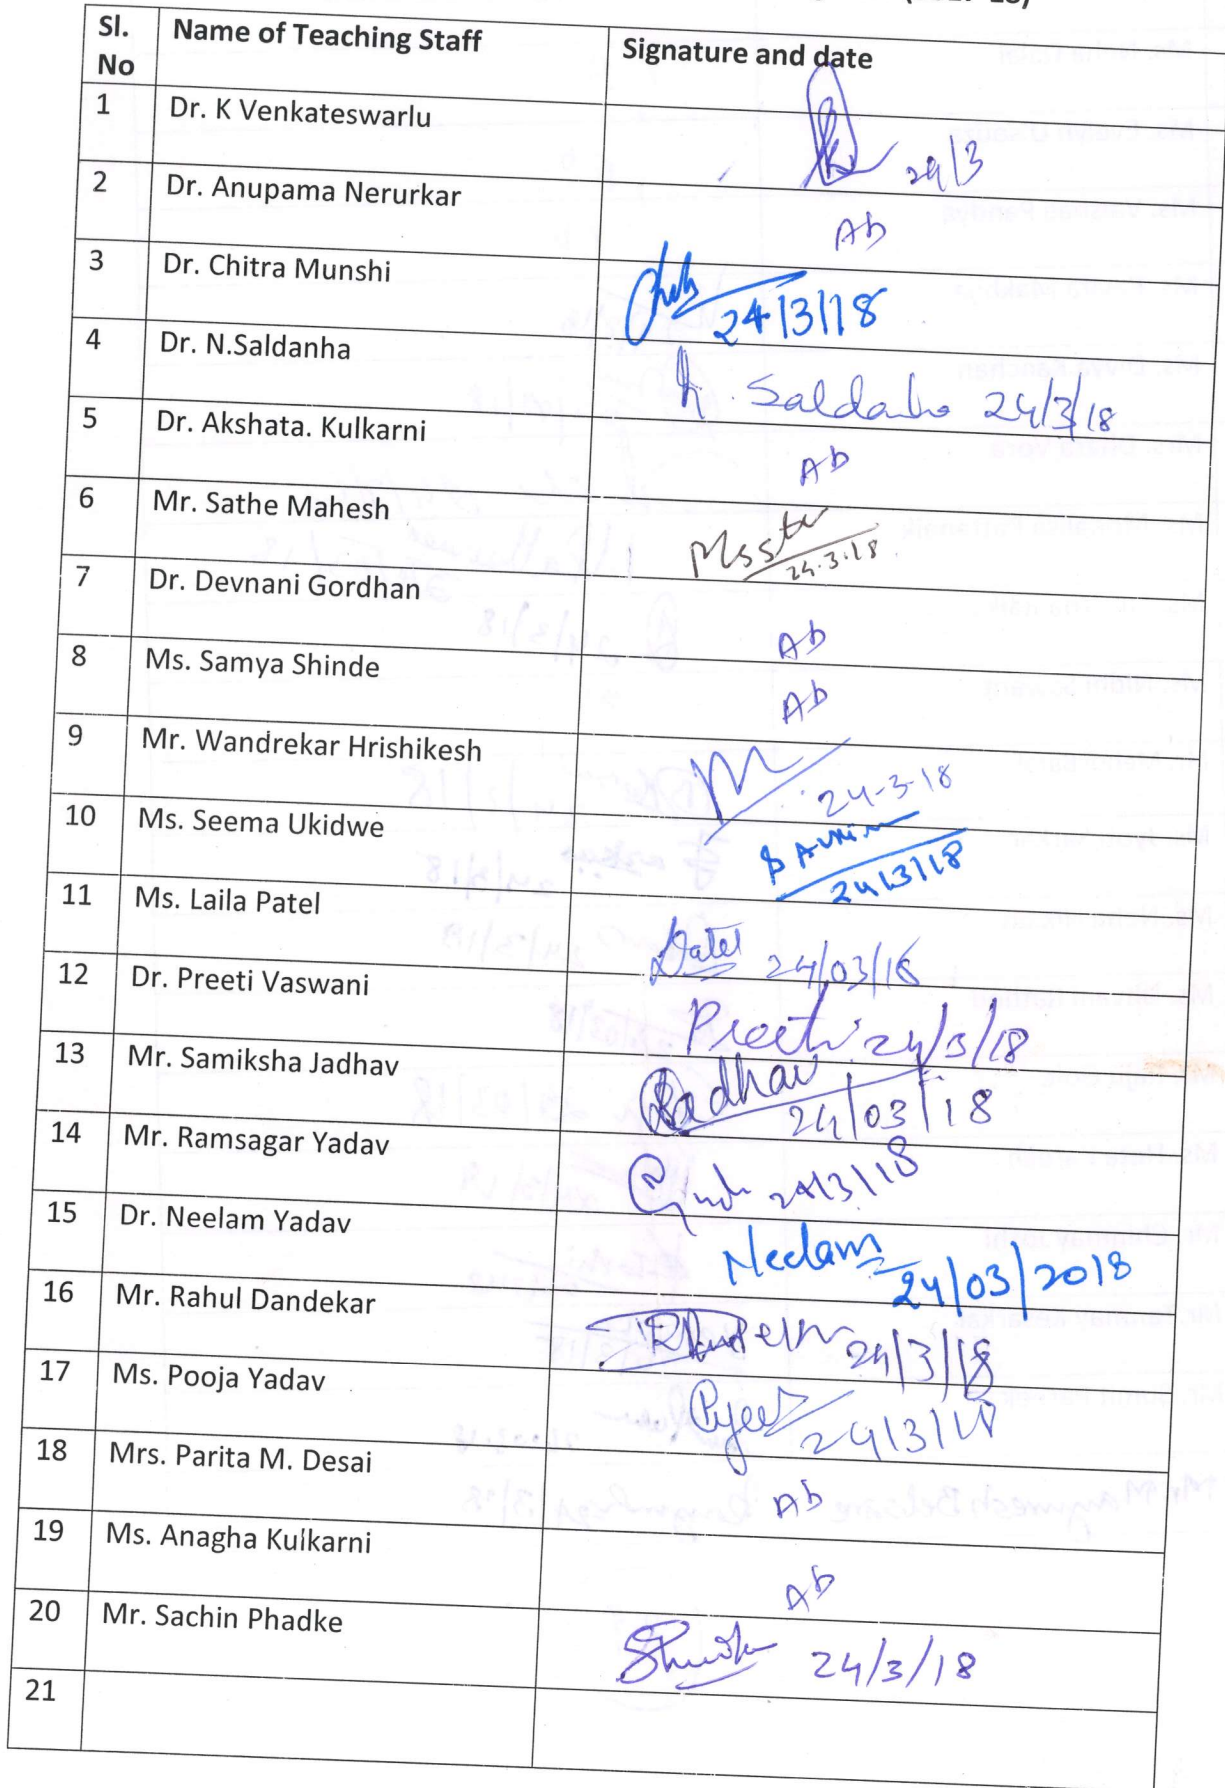 Sl. No Name of Teaching Staff Signature and date
1 Dr. K Venkateswarlu 24/3
2 Dr. Anupama Nerurkar Ab
3 Dr. Chitra Munshi 24/3/18
4 Dr. N.Saldanha N. Saldanha 24/3/18
5 Dr. Akshata. Kulkarni Ab
6 Mr. Sathe Mahesh 24.3.18
7 Dr. Devnani Gordhan Ab
8 Ms. Samya Shinde Ab
9 Mr. Wandrekar Hrishikesh 24-3-18
10 Ms. Seema Ukidwe 24/3/18
11 Ms. Laila Patel Patel 24/03/18
12 Dr. Preeti Vaswani Preeti 24/3/18
13 Mr. Samiksha Jadhav Jadhav 24/03/18
14 Mr. Ramsagar Yadav 24/3/18
15 Dr. Neelam Yadav Neelam 24/03/2018
16 Mr. Rahul Dandekar 24/3/18
17 Ms. Pooja Yadav 24/3/18
18 Mrs. Parita M. Desai Ab
19 Ms. Anagha Kulkarni Ab
20 Mr. Sachin Phadke 24/3/18
21